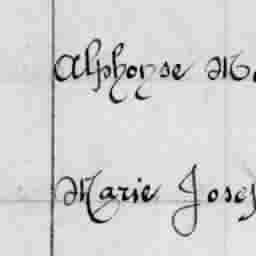 Alphonse M.
Marie Jose